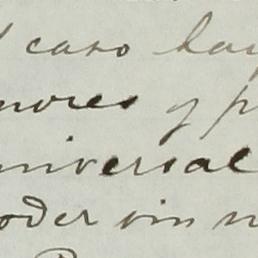 caso hay
nores y p
niversal
oder sin n